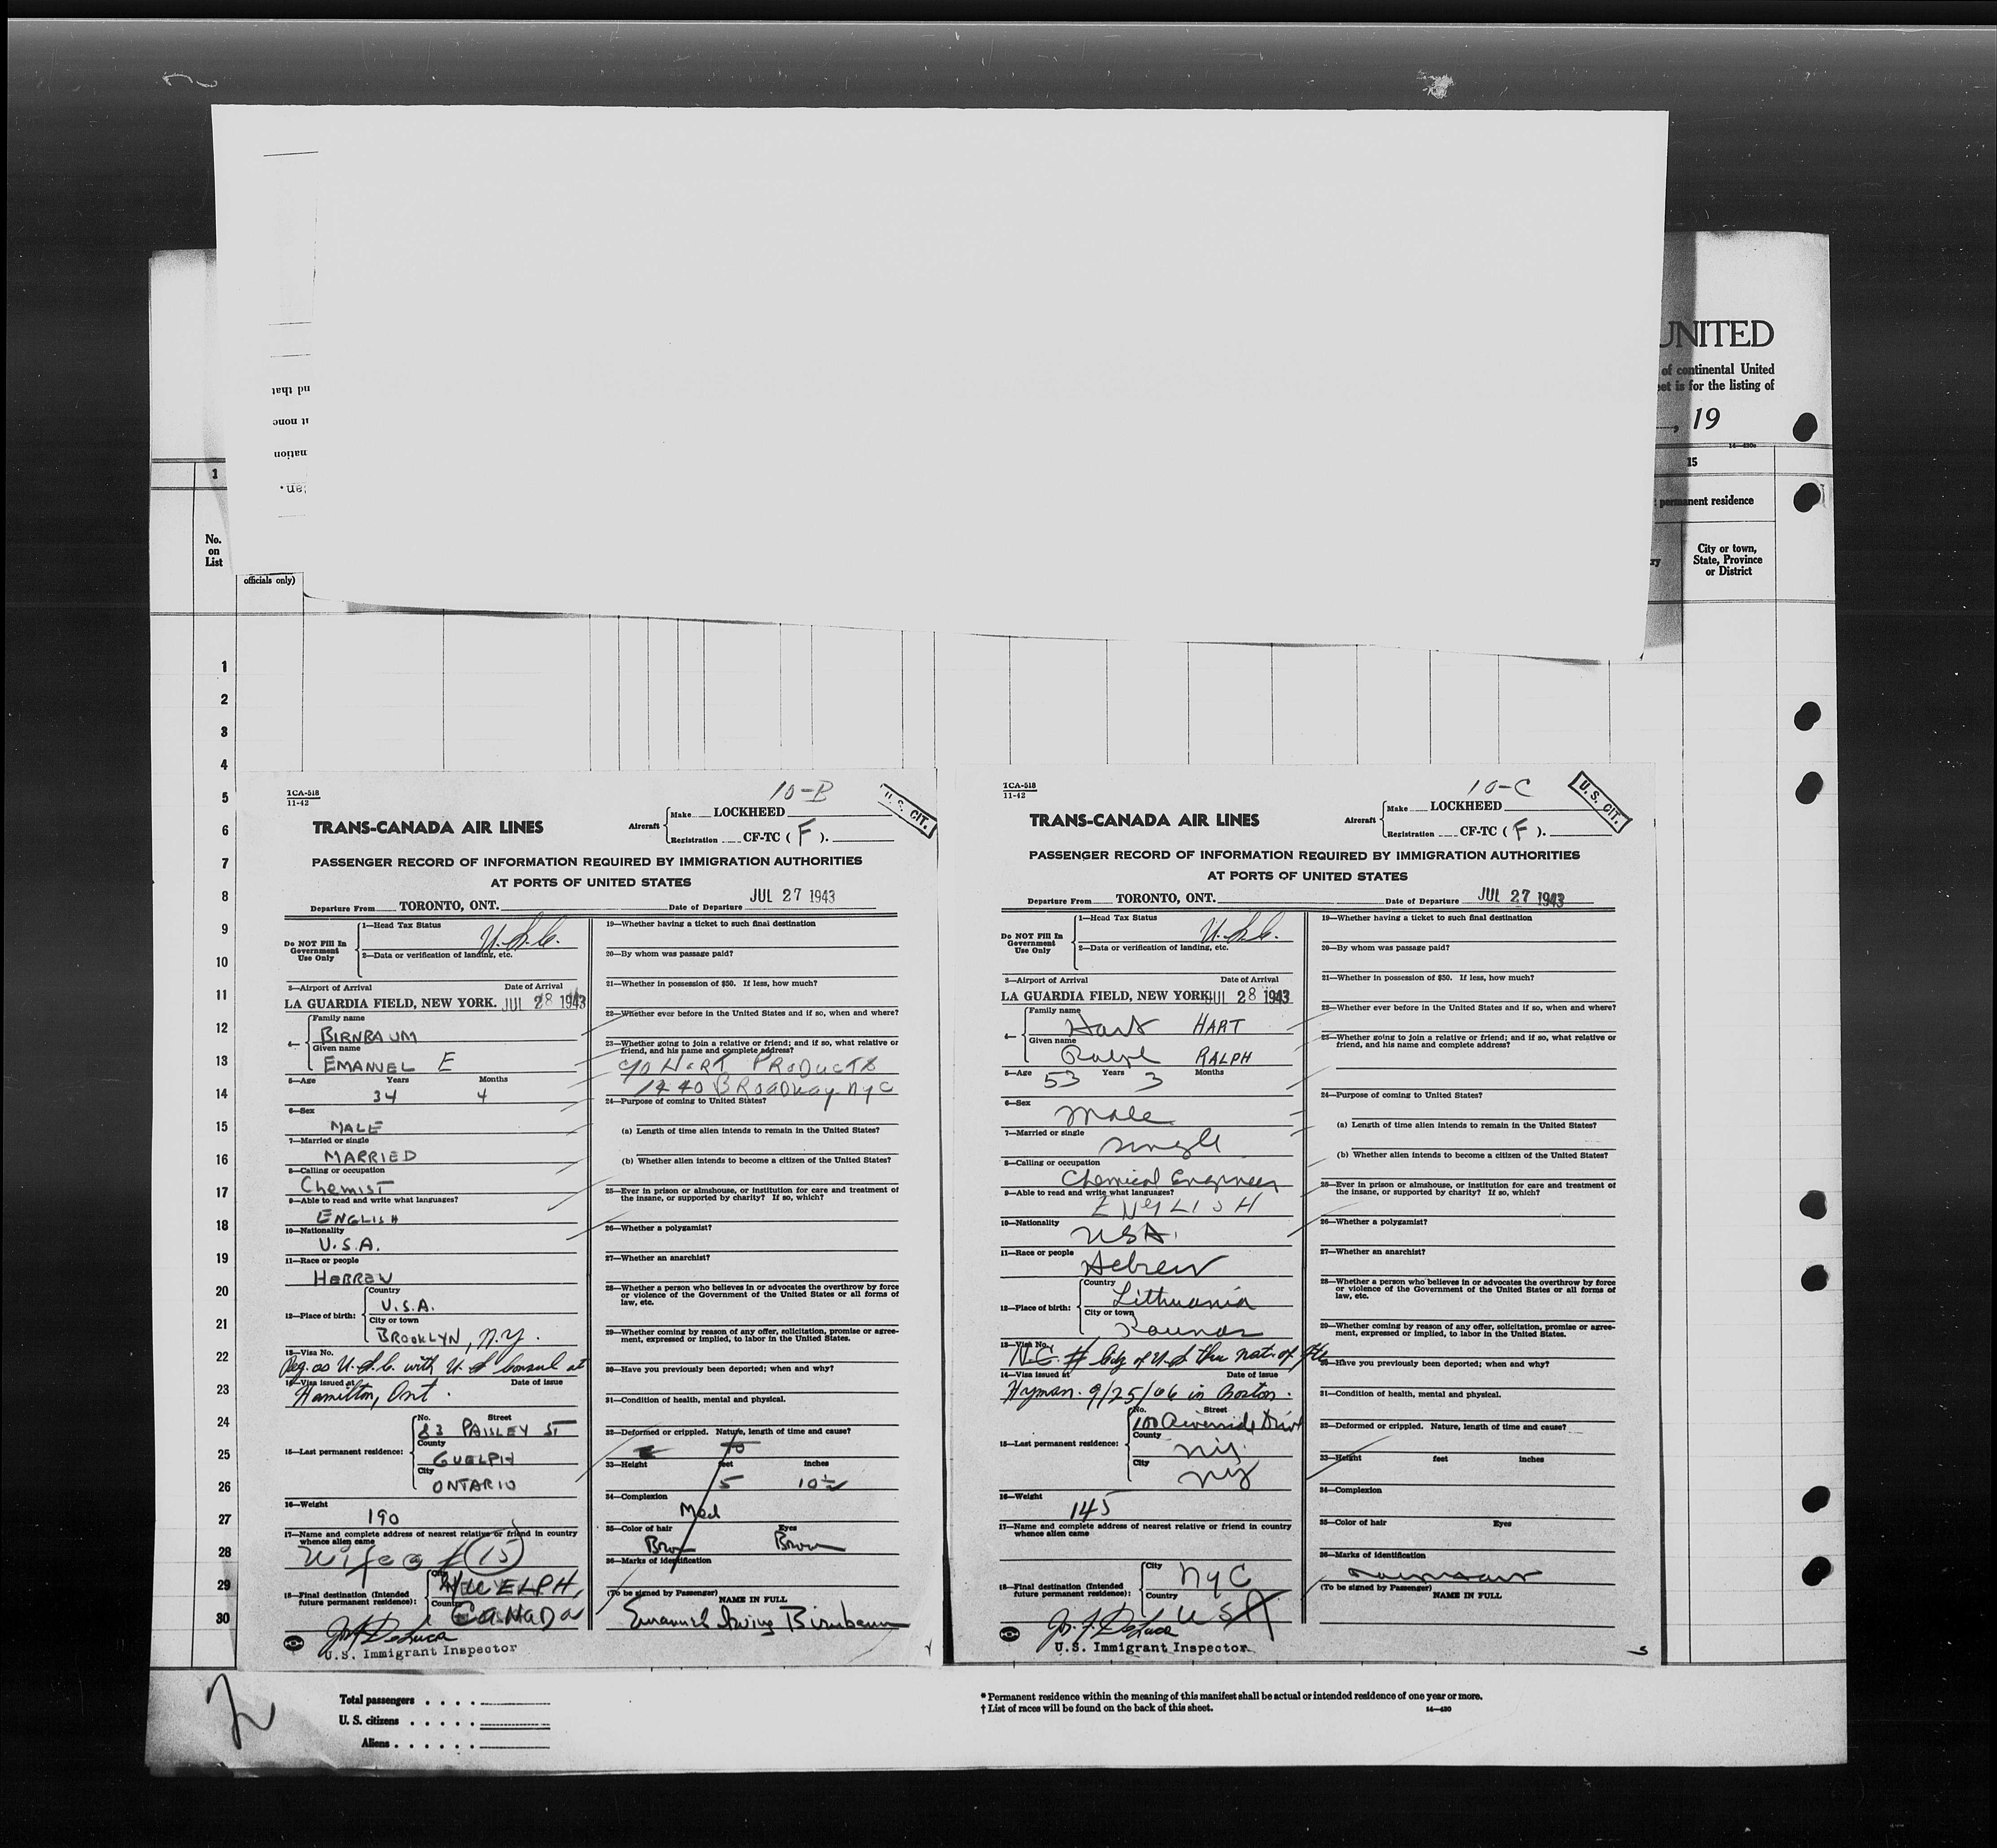 UNITED
of continental United
et is for the listing of
, 19
14—430a
1
15
permanent residence
No.
on
List
City or town,
State, Province
or District
ry
officials only)
nd that
it none
nation
1
2
3
4
5
6
7
8
9
10
11
12
13
14
15
16
17
18
19
20
21
22
23
24
25
26
27
28
29
30
TCA-518
11-42
10-B
U. S. CIT.
TRANS-CANADA AIR LINES
Aircraft
Make LOCKHEED
Registration CF-TC ( F ).
PASSENGER RECORD OF INFORMATION REQUIRED BY IMMIGRATION AUTHORITIES
AT PORTS OF UNITED STATES
Departure From TORONTO, ONT. Date of Departure JUL 27 1943
Do NOT Fill In
Government
Use Only
1—Head Tax Status
U.S.C.
2—Data or verification of landing, etc.
3—Airport of Arrival Date of Arrival
LA GUARDIA FIELD, NEW YORK. JUL 28 1943
4—
Family name
BIRNBAUM
Given name
EMANUEL E
5—Age Years Months
34 4
6—Sex
MALE
7—Married or single
MARRIED
8—Calling or occupation
Chemist
9—Able to read and write what languages?
ENGLISH
10—Nationality
U.S.A.
11—Race or people
HEBREW
12—Place of birth:
Country
U.S.A.
City or town
BROOKLYN, N.Y.
13—Visa No.
Reg. as U.S.C. with U.S Consul at
14—Visa issued at Date of issue
Hamilton, Ont.
15—Last permanent residence:
No. Street
83 PAISLEY ST
County
GUELPH
City
ONTARIO
16—Weight
190
17—Name and complete address of nearest relative or friend in country
whence alien came
Wife at (15)
18—Final destination (Intended
future permanent residence):
City
GUELPH,
Country
CANADA
Jos. F. DeLuca
U.S. Immigrant Inspector
19—Whether having a ticket to such final destination
20—By whom was passage paid?
21—Whether in possession of $50. If less, how much?
22—Whether ever before in the United States and if so, when and where?
23—Whether going to join a relative or friend; and if so, what relative or
friend, and his name and complete address?
c/o HART PRODUCTS
1440 BROADWAY NYC
24—Purpose of coming to United States?
(a) Length of time alien intends to remain in the United States?
(b) Whether alien intends to become a citizen of the United States?
25—Ever in prison or almshouse, or institution for care and treatment of
the insane, or supported by charity? If so, which?
26—Whether a polygamist?
27—Whether an anarchist?
28—Whether a person who believes in or advocates the overthrow by force
or violence of the Government of the United States or all forms of
law, etc.
29—Whether coming by reason of any offer, solicitation, promise or agree-
ment, expressed or implied, to labor in the United States.
30—Have you previously been deported; when and why?
31—Condition of health, mental and physical.
32—Deformed or crippled. Nature, length of time and cause?
33—Height feet inches
5 10½
34—Complexion
Med
35—Color of hair Eyes
Bro Brown
36—Marks of identification
(To be signed by Passenger)
NAME IN FULL
Emanuel Irving Birnbaum
TCA-518
11-42
10-C
U. S. CIT.
TRANS-CANADA AIR LINES
Aircraft
Make LOCKHEED
Registration CF-TC ( F ).
PASSENGER RECORD OF INFORMATION REQUIRED BY IMMIGRATION AUTHORITIES
AT PORTS OF UNITED STATES
Departure From TORONTO, ONT. Date of Departure JUL 27 1943
Do NOT Fill In
Government
Use Only
1—Head Tax Status
U.S.C.
2—Data or verification of landing, etc.
3—Airport of Arrival Date of Arrival
LA GUARDIA FIELD, NEW YORK JUL 28 1943
4—
Family name
Hart HART
Given name
Ralph RALPH
5—Age Years Months
53 3
6—Sex
Male
7—Married or single
single
8—Calling or occupation
Chemical Engineer
9—Able to read and write what languages?
ENGLISH
10—Nationality
USA.
11—Race or people
Hebrew
12—Place of birth:
Country
Lithuania
City or town
Kaunas
13—Visa No.
N.C. # Cdg of U.S thru nat. of fthr
14—Visa issued at Date of issue
Hyman. 9/25/06 in Boston.
15—Last permanent residence:
No. Street
100 Riverside Drive
County
NY.
City
NY
16—Weight
145
17—Name and complete address of nearest relative or friend in country
whence alien came
18—Final destination (Intended
future permanent residence):
City
NYC
Country
USA
Jos. F. DeLuca
U.S. Immigrant Inspector
19—Whether having a ticket to such final destination
20—By whom was passage paid?
21—Whether in possession of $50. If less, how much?
22—Whether ever before in the United States and if so, when and where?
23—Whether going to join a relative or friend; and if so, what relative or
friend, and his name and complete address?
24—Purpose of coming to United States?
(a) Length of time alien intends to remain in the United States?
(b) Whether alien intends to become a citizen of the United States?
25—Ever in prison or almshouse, or institution for care and treatment of
the insane, or supported by charity? If so, which?
26—Whether a polygamist?
27—Whether an anarchist?
28—Whether a person who believes in or advocates the overthrow by force
or violence of the Government of the United States or all forms of
law, etc.
29—Whether coming by reason of any offer, solicitation, promise or agree-
ment, expressed or implied, to labor in the United States.
30—Have you previously been deported; when and why?
31—Condition of health, mental and physical.
32—Deformed or crippled. Nature, length of time and cause?
33—Height feet inches
34—Complexion
35—Color of hair Eyes
36—Marks of identification
(To be signed by Passenger)
NAME IN FULL
5
2
Total passengers . . . .
U. S. citizens . . . . .
Aliens . . . . . .
* Permanent residence within the meaning of this manifest shall be actual or intended residence of one year or more.
† List of races will be found on the back of this sheet.
14—430